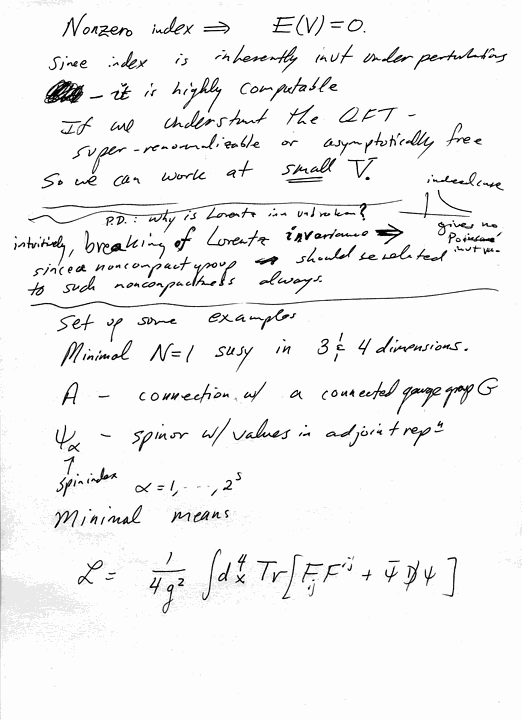 Nonzero index ⟹ E(V)=0.
Since index is inherently invt under perturbations
– it is highly computable
If we understand the QFT –
super-renormalizable or asymptotically free
So we can work at small V.
indeed case
P.D.: Why is Lorentz inv unbroken?
gives no Poincaré invt
intuitively, breaking of Lorentz invariance ⟹
since a noncompact group should be related
to such noncompactness always.
Set up some examples
Minimal N=1 susy in 3 & 4 dimensions.
A – connection w/ a connected gauge group G
Ψ_α – spinor w/ values in adjoint rep^n
↑
spin index α = 1, ···, 2^s
Minimal means
ℒ = 1/4g² ∫d⁴x Tr[F_ij F^ij + Ψ̄ D̸ Ψ]